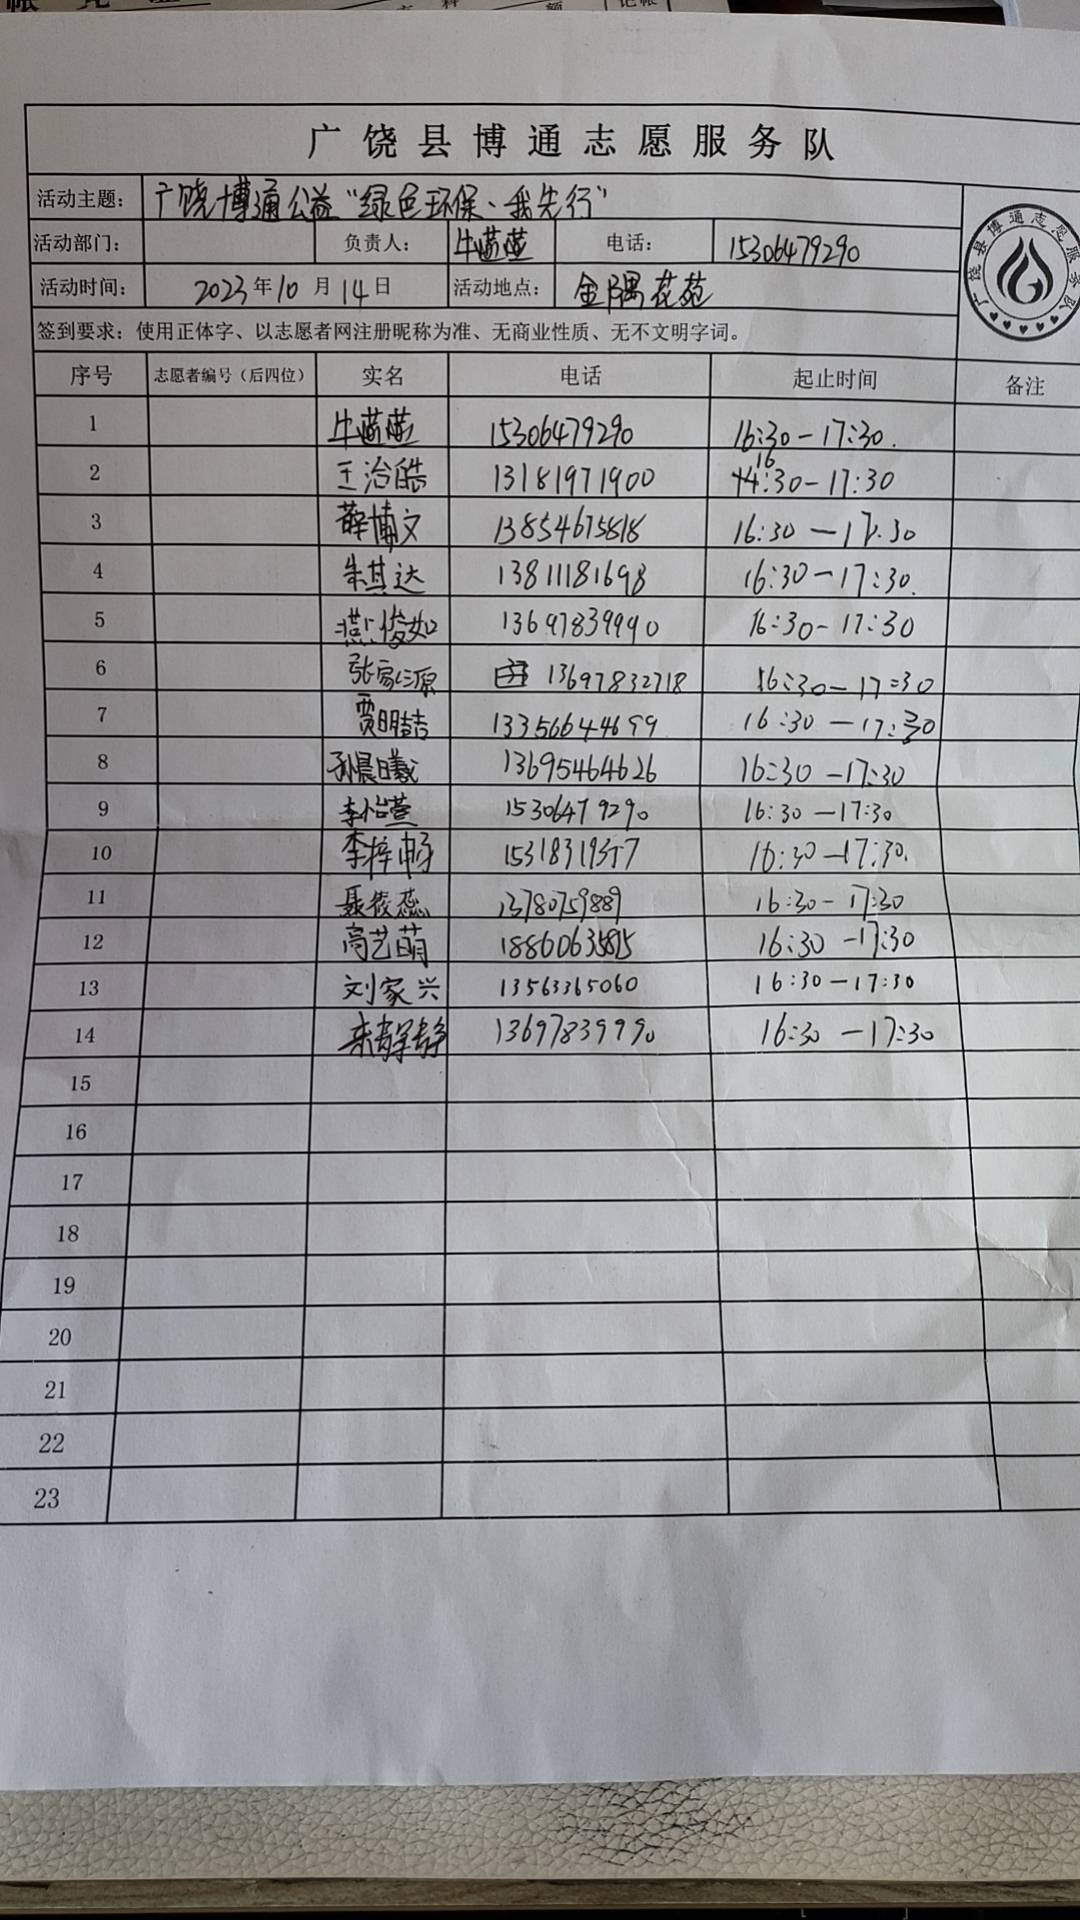 记帐
广饶县博通志愿服务队
活动主题： 广饶博通公益“绿色环保、我先行”
活动部门： 负责人： 牛蓝蓝 电话： 15306479290
活动时间： 2023年10月14日 活动地点： 金隅花苑
广饶县博通志愿服务队
签到要求：使用正体字、以志愿者网注册昵称为准、无商业性质、无不文明字词。
序号 志愿者编号（后四位） 实名 电话 起止时间 备注
1 牛蓝蓝 15306479290 16:30-17:30.
2 王治皓 13181971900 16:30-17:30
3 薛博文 13854675818 16:30-17:30
4 朱其达 13811181698 16:30-17:30.
5 燕俊如 13697839990 16:30-17:30
6 张家源 13697832718 16:30-17:30
7 贾明喆 13356644699 16:30-17:30
8 孙晨曦 13695464626 16:30-17:30
9 李怡萱 15306479290 16:30-17:30
10 李梓畅 16:30-17:30.
11 聂筱蕊 13780759889 16:30-17:30
12 高艺萌 16:30-17:30
13 刘家兴 13563365060 16:30-17:30
14 13697839990 16:30-17:30
15
16
17
18
19
20
21
22
23